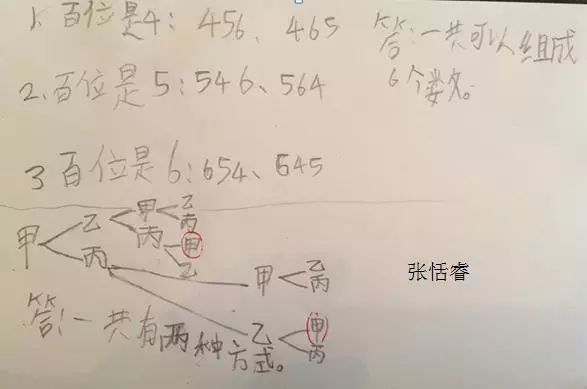 1. 百位是4：456、465
答：一共可以组成
6个数。
2. 百位是5：546、564
3 百位是6：654、645
甲 乙 甲 乙
丙
丙 甲
乙
丙 甲 乙
丙
乙 甲
丙
张恬睿
答：一共有两种方式。